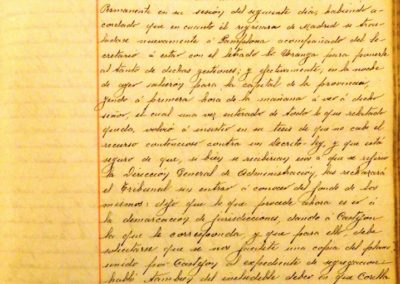 Permanente en su sesión del siguiente día, habiendo a-
cordado que en cuanto él regresara de Madrid se tras-
ladase nuevamente a Pamplona acompañado del Se-
cretario á estar con el letrado Sr Uranga para ponerle
al tanto de dichas gestiones; y efectivamente, en la noche
de ayer salieron para la capital de la provincia,
yendo á primera hora de la mañana á ver á dicho
señor, el cual una vez enterado de todo lo que relatado
queda, volvió á insistir en su tesis de que no cabe el
recurso contencioso contra un Decreto-ley, y que está
seguro de que, si bien se recibirían á que se refiere
la Dirección General de Administración, las rechazará
el Tribunal sin entrar á conocer del fondo de los
mismos: dijo que lo que procede ahora es ir á
la demarcación de jurisdicciones, dando á Castejón
la que le corresponda, y que para ello debe
solicitarse que se nos facilite una copia del plano
unido por Castejón al expediente de segregación
habló tambien del ineludible deber en que Corella